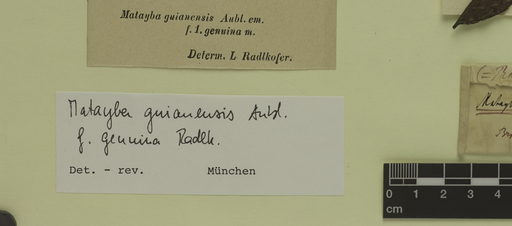 Matayba guianensis Aubl. em.
f. 1. genuina m.
Determ. L Radlkofer.
Matayba guianensis Aubl.
f. genuina Radlk.
Det. - rev. München
0 1 2 3 4
cm